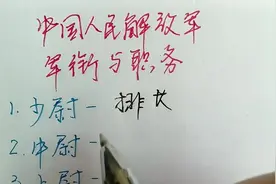 中国人民解放军
军衔与职务
1. 少尉 - 排长
2. 中尉 -
3. 上尉 -